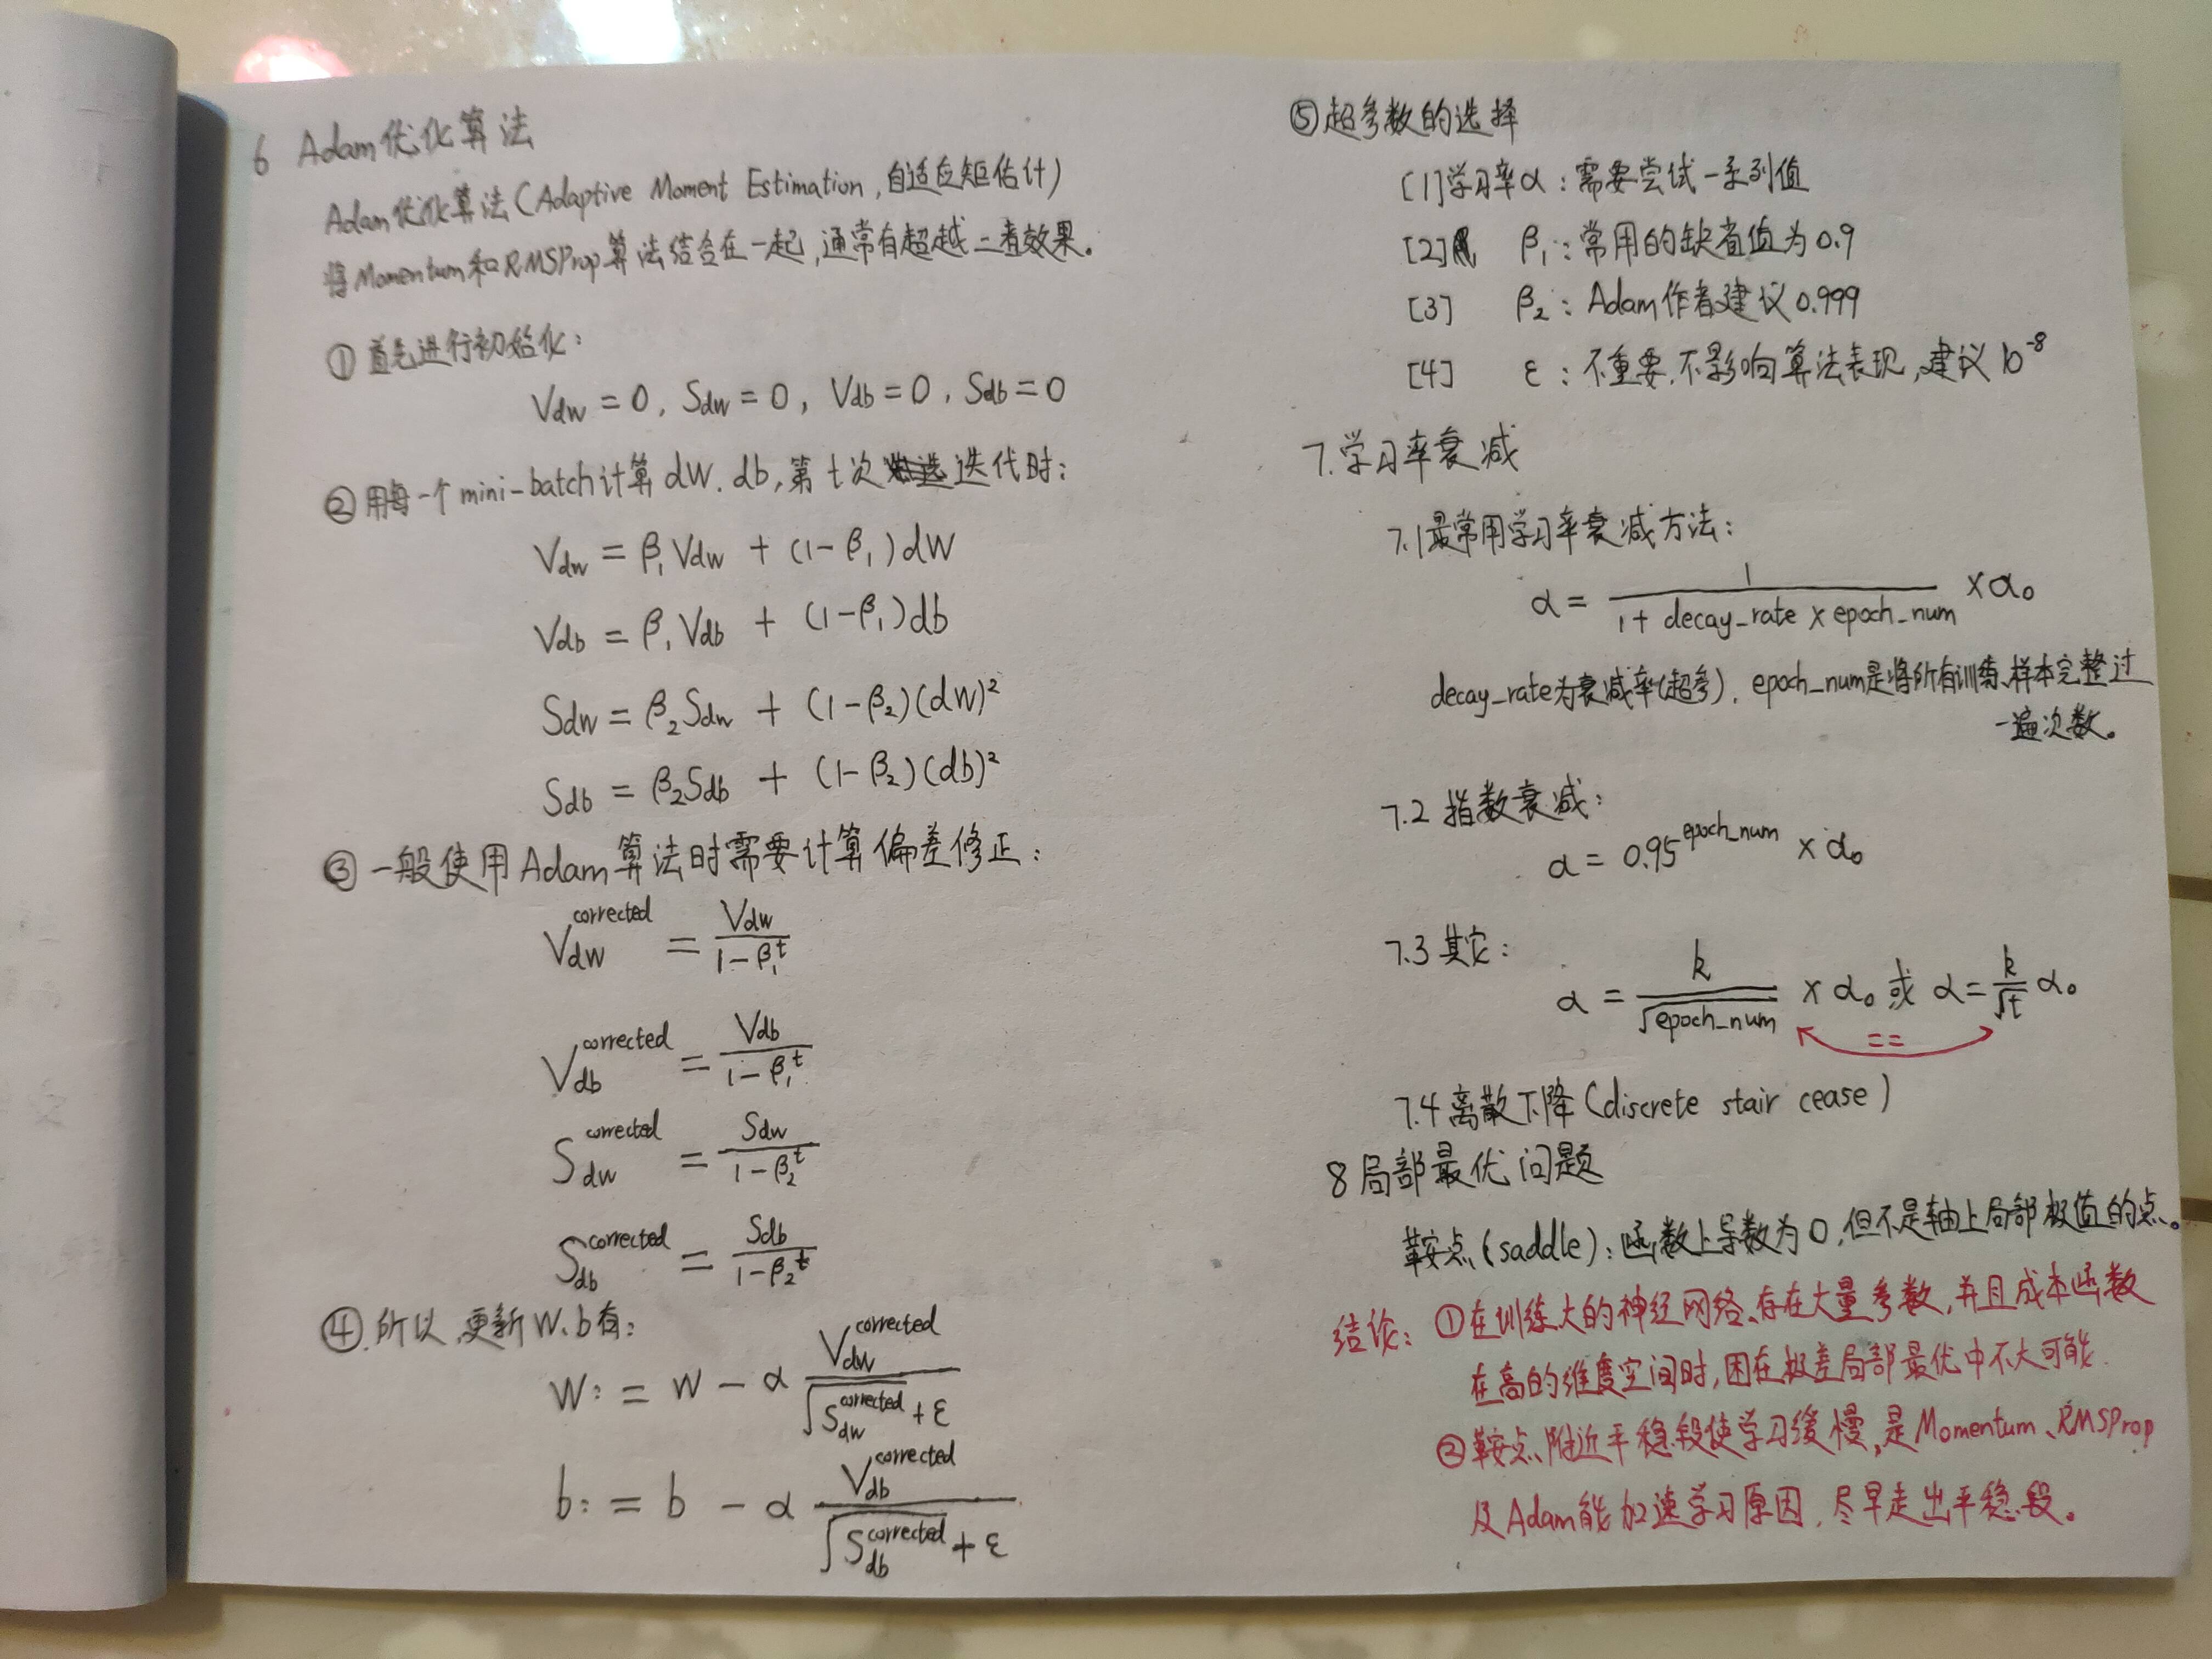 6 Adam优化算法
Adam优化算法(Adaptive Moment Estimation,自适应矩估计)
将Momentum和RMSProp算法结合在一起,通常有超越二者效果。
①首先进行初始化:
Vdw = 0, Sdw = 0, Vdb = 0, Sdb = 0
②用每一个mini-batch计算dW、db,第t次迭代时:
Vdw = β₁Vdw + (1-β₁)dW
Vdb = β₁Vdb + (1-β₁)db
Sdw = β₂Sdw + (1-β₂)(dW)²
Sdb = β₂Sdb + (1-β₂)(db)²
③一般使用Adam算法时需要计算偏差修正:
Vdw^corrected = Vdw / (1-β₁^t)
Vdb^corrected = Vdb / (1-β₁^t)
Sdw^corrected = Sdw / (1-β₂^t)
Sdb^corrected = Sdb / (1-β₂^t)
④.所以,更新W、b有:
W := W - α Vdw^corrected / (√Sdw^corrected + ε)
b := b - α Vdb^corrected / (√Sdb^corrected + ε)
⑤超参数的选择
[1]学习率α:需要尝试一系列值
[2] β₁:常用的缺省值为0.9
[3] β₂:Adam作者建议0.999
[4] ε:不重要,不影响算法表现,建议10⁻⁸
7.学习率衰减
7.1最常用学习率衰减方法:
α = 1 / (1 + decay_rate × epoch_num) × α₀
decay_rate为衰减率(超参),epoch_num是将所有训练样本完整过
一遍次数。
7.2 指数衰减:
α = 0.95^epoch_num × α₀
7.3 其它:
α = k / √epoch_num × α₀ 或 α = k / √t α₀
==
7.4离散下降(discrete stair cease)
8局部最优问题
鞍点(saddle):函数上导数为0,但不是轴上局部极值的点。
结论:①在训练大的神经网络、存在大量参数,并且成本函数
在高的维度空间时,困在极差局部最优中不大可能.
②鞍点附近平稳段使学习缓慢,是Momentum、RMSProp
及Adam能加速学习原因,尽早走出平稳段。